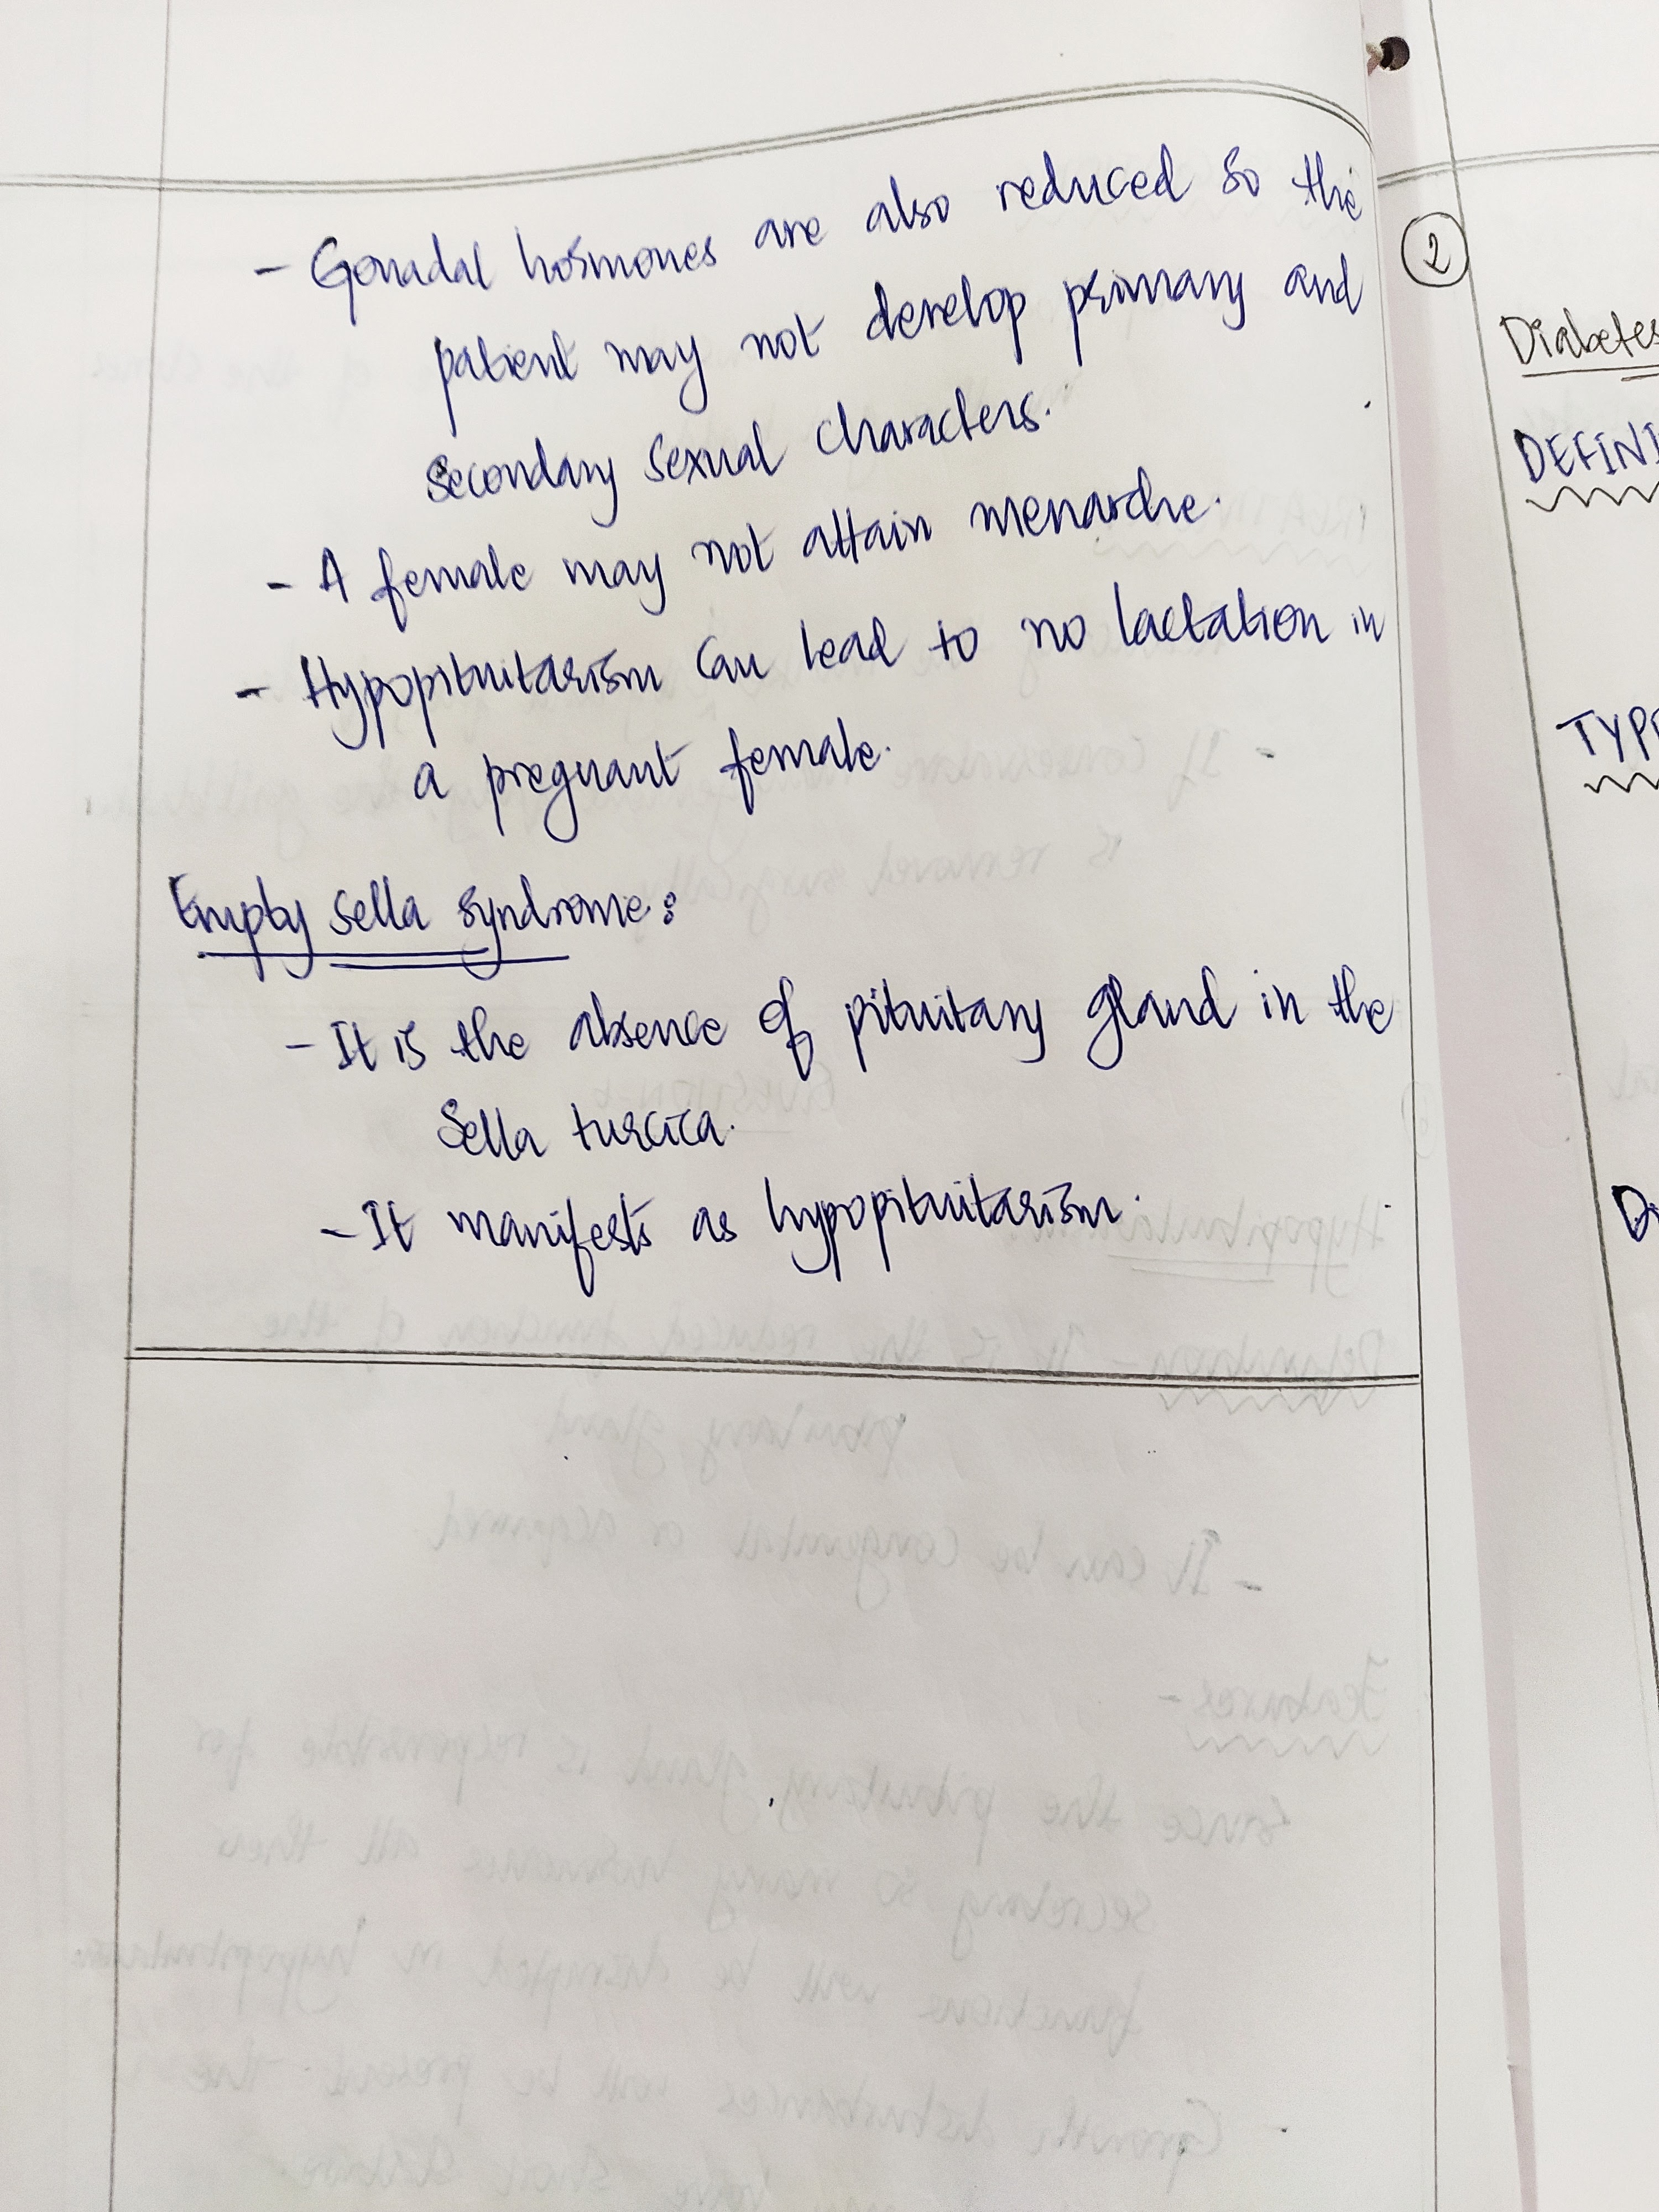 - Gonadal hormones are also reduced so the
patient may not develop primary and
secondary sexual characters.
- A female may not attain menarche.
- Hypopituitarism can lead to no lactation in
a pregnant female.
Empty sella syndrome:
- It is the absence of pituitary gland in the
Sella turcica.
- It manifests as hypopituitarism.
2
Diabetes
DEFINI
TYPE